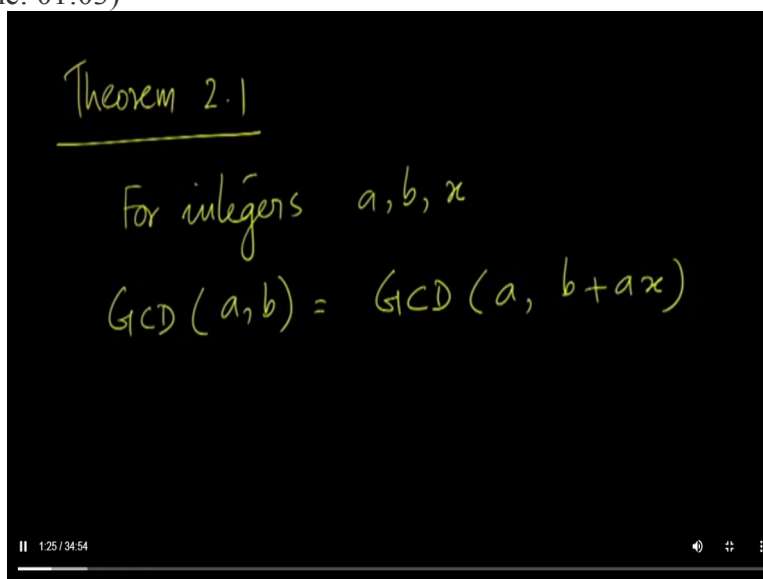 ne: 01:05)
Theorem 2.1
For integers a, b, x
GCD (a, b) = GCD (a, b+ax)
1:25 / 34:54